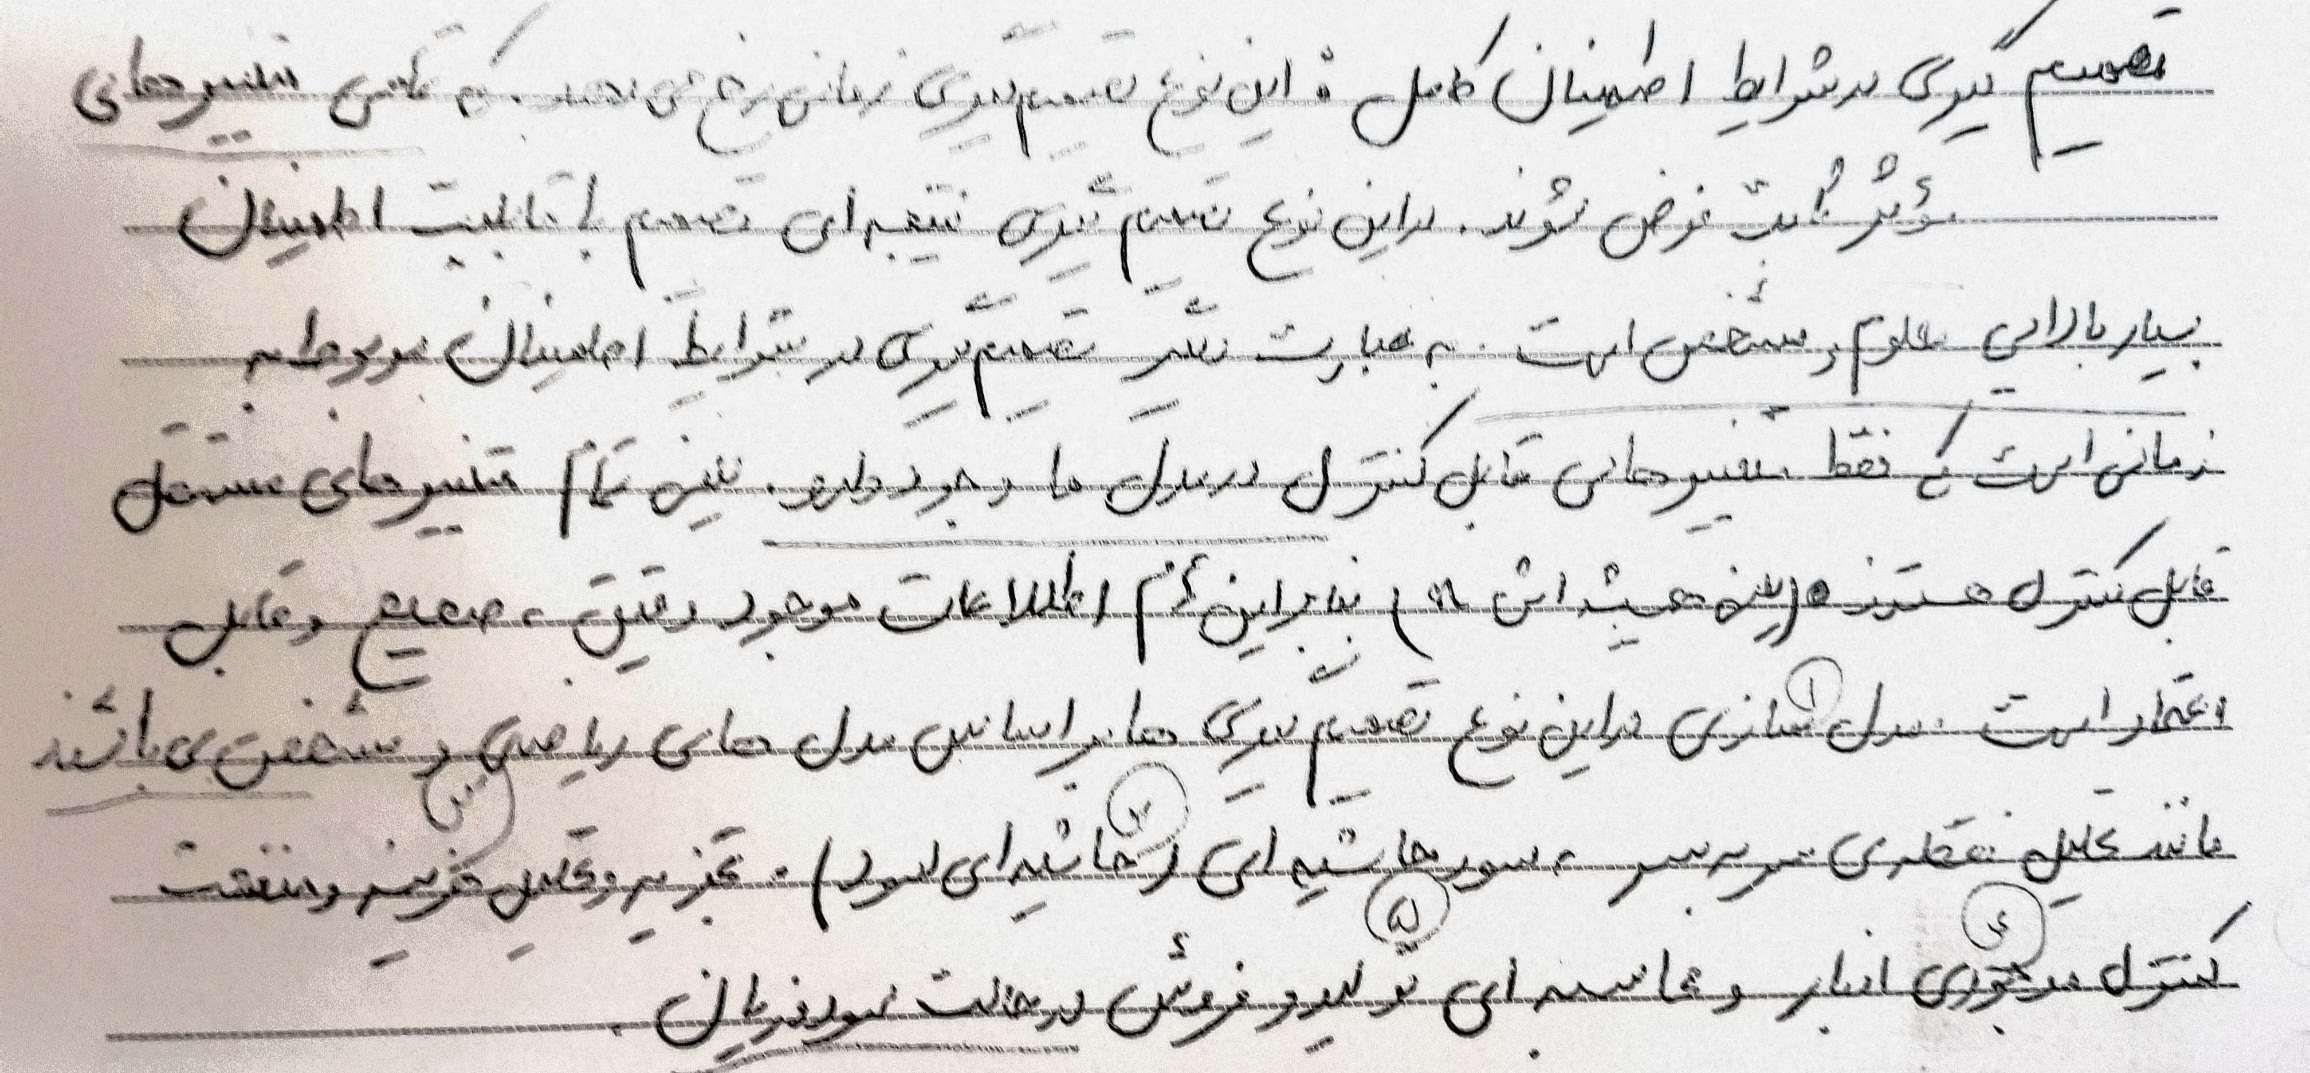 تصمیم گیری در شرایط اطمینان کامل : این نوع تصمیم گیری زمانی رخ می دهد. که تمامی متغیرهای
مؤثر ثابت فرض شوند. در این نوع تصمیم گیری نتیجه ای تصمیم با قابلیت اطمینان
بسیار بالایی معلوم و مشخص است. به عبارت دیگر تصمیم گیری در شرایط اطمینان مربوط به
زمانی است که فقط متغیرهای قابل کنترل در مدل ما وجود دارد. یعنی تمام متغیرهای مستقل
قابل کنترل هستند (یعنی همیشه اش ) بنابراین تمام اطلاعات موجود دقیق، صحیح و قابل
اعتماد است. مدل سازی در این نوع تصمیم گیری ها بر اساس مدل های ریاضی و مشخص می باشند
مانند تحلیل نقطه ی سر به سر ، سود حاشیه ای (حاشیه ای سود) ، تجزیه و تحلیل هزینه و منفعت
کنترل موجودی انبار و محاسبه ای تولید و فروش در حالت سود و زیان .